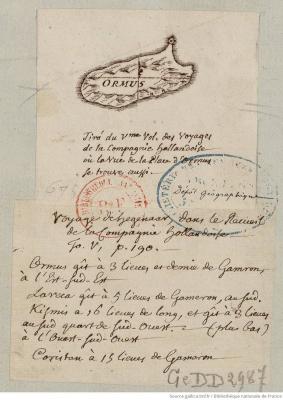 ORMUS
Tiré du Vme Vol. des Voyages
de la Compagnie hollandoise
où la Vue de la Place d'Ormus
se trouve aussi.
Dépôt géographique
Voyage de hegenaar, dans le Recueil
de la Compagnie hollandoise
To. V, p. 190.
Ormus gît à 3 lieues et demie de Gamron,
à l'Est-sud-Est
Lareca gît à 5 lieues de Gameron, au sud.
Kismis a 16 lieues de long, et gît à 3 lieues
au sud quart de Sud-Ouest. — (plus bas)
à l'Ouest-Sud-Ouest
Coristan à 15 lieues de Gameron
Ge DD 2987
Source gallica.bnf.fr / Bibliothèque nationale de France